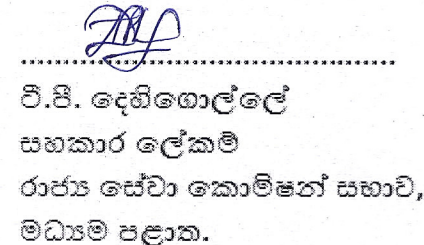 ටී.පී. දෙහිගොල්ලේ
සහකාර ලේකම්
රාජ්‍ය සේවා කොමිෂන් සභාව,
මධ්‍යම පළාත.